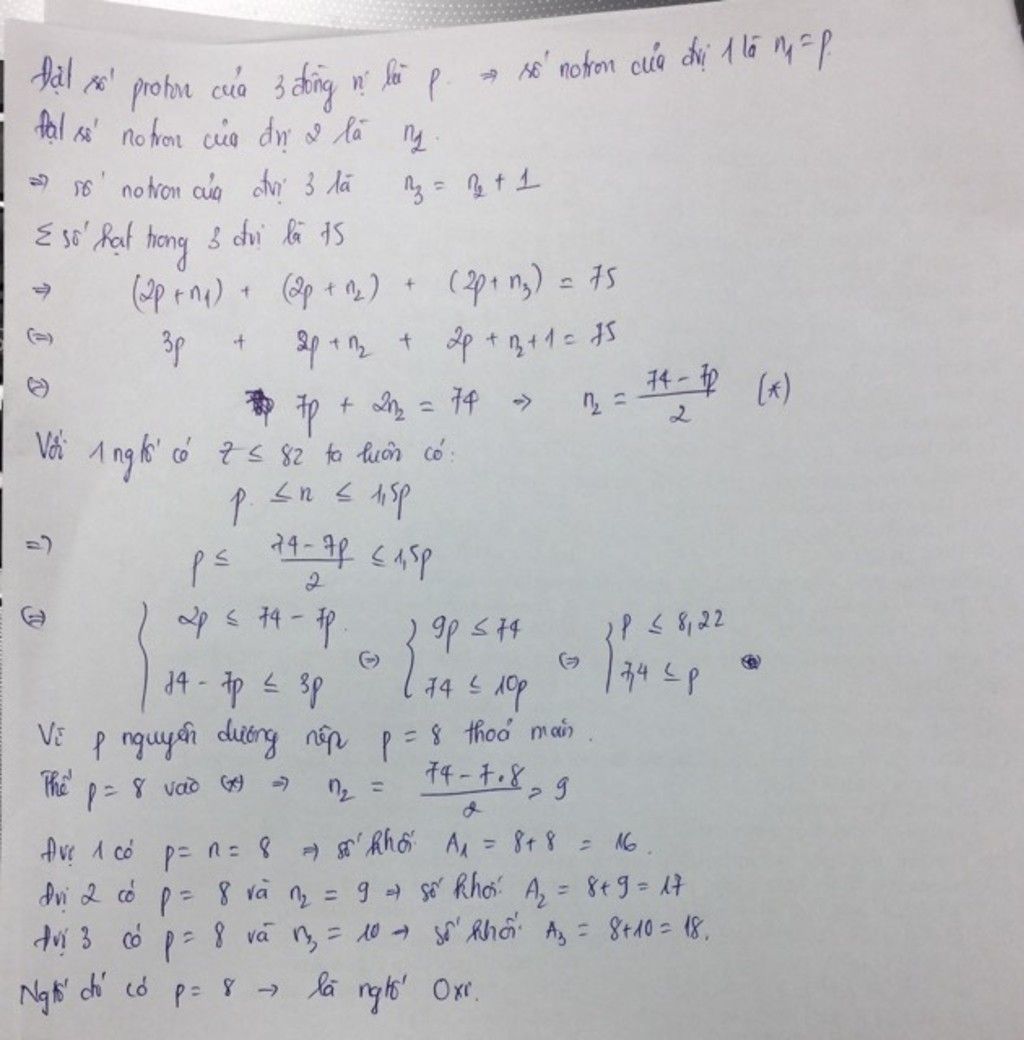 Đặt số proton của 3 đồng vị là p. ⇒ số notron của đvị 1 là n₁ = p.
Đặt số notron của đvị 2 là n₂.
⇒ số notron của đvị 3 là n₃ = n₂ + 1
Σ số hạt trong 3 đvị là 75
⇒ (2p + n₁) + (2p + n₂) + (2p + n₃) = 75
(=) 3p + 2p + n₂ + 2p + n₂ + 1 = 75
(=) 7p + 2n₂ = 74 ⇒ n₂ = (74 - 7p)/2 (*)
Với 1 ngtố có Z ≤ 82 ta luôn có:
p ≤ n ≤ 1,5p
=> p ≤ (74 - 7p)/2 ≤ 1,5p
(=) { 2p ≤ 74 - 7p. (=) { 9p ≤ 74 (=) { p ≤ 8,22
74 - 7p ≤ 3p 74 ≤ 10p 7,4 ≤ p
Vì p nguyên dương nên p = 8 thoả mãn.
Thế p = 8 vào (*) ⇒ n₂ = (74 - 7.8)/2 = 9
Đvị 1 có p = n = 8 ⇒ số khối A₁ = 8+8 = 16.
Đvị 2 có p = 8 và n₂ = 9 ⇒ số khối A₂ = 8+9 = 17
Đvị 3 có p = 8 và n₃ = 10 → số khối A₃ = 8+10 = 18.
Ngtố đó có p = 8 → là ngtố Oxi.